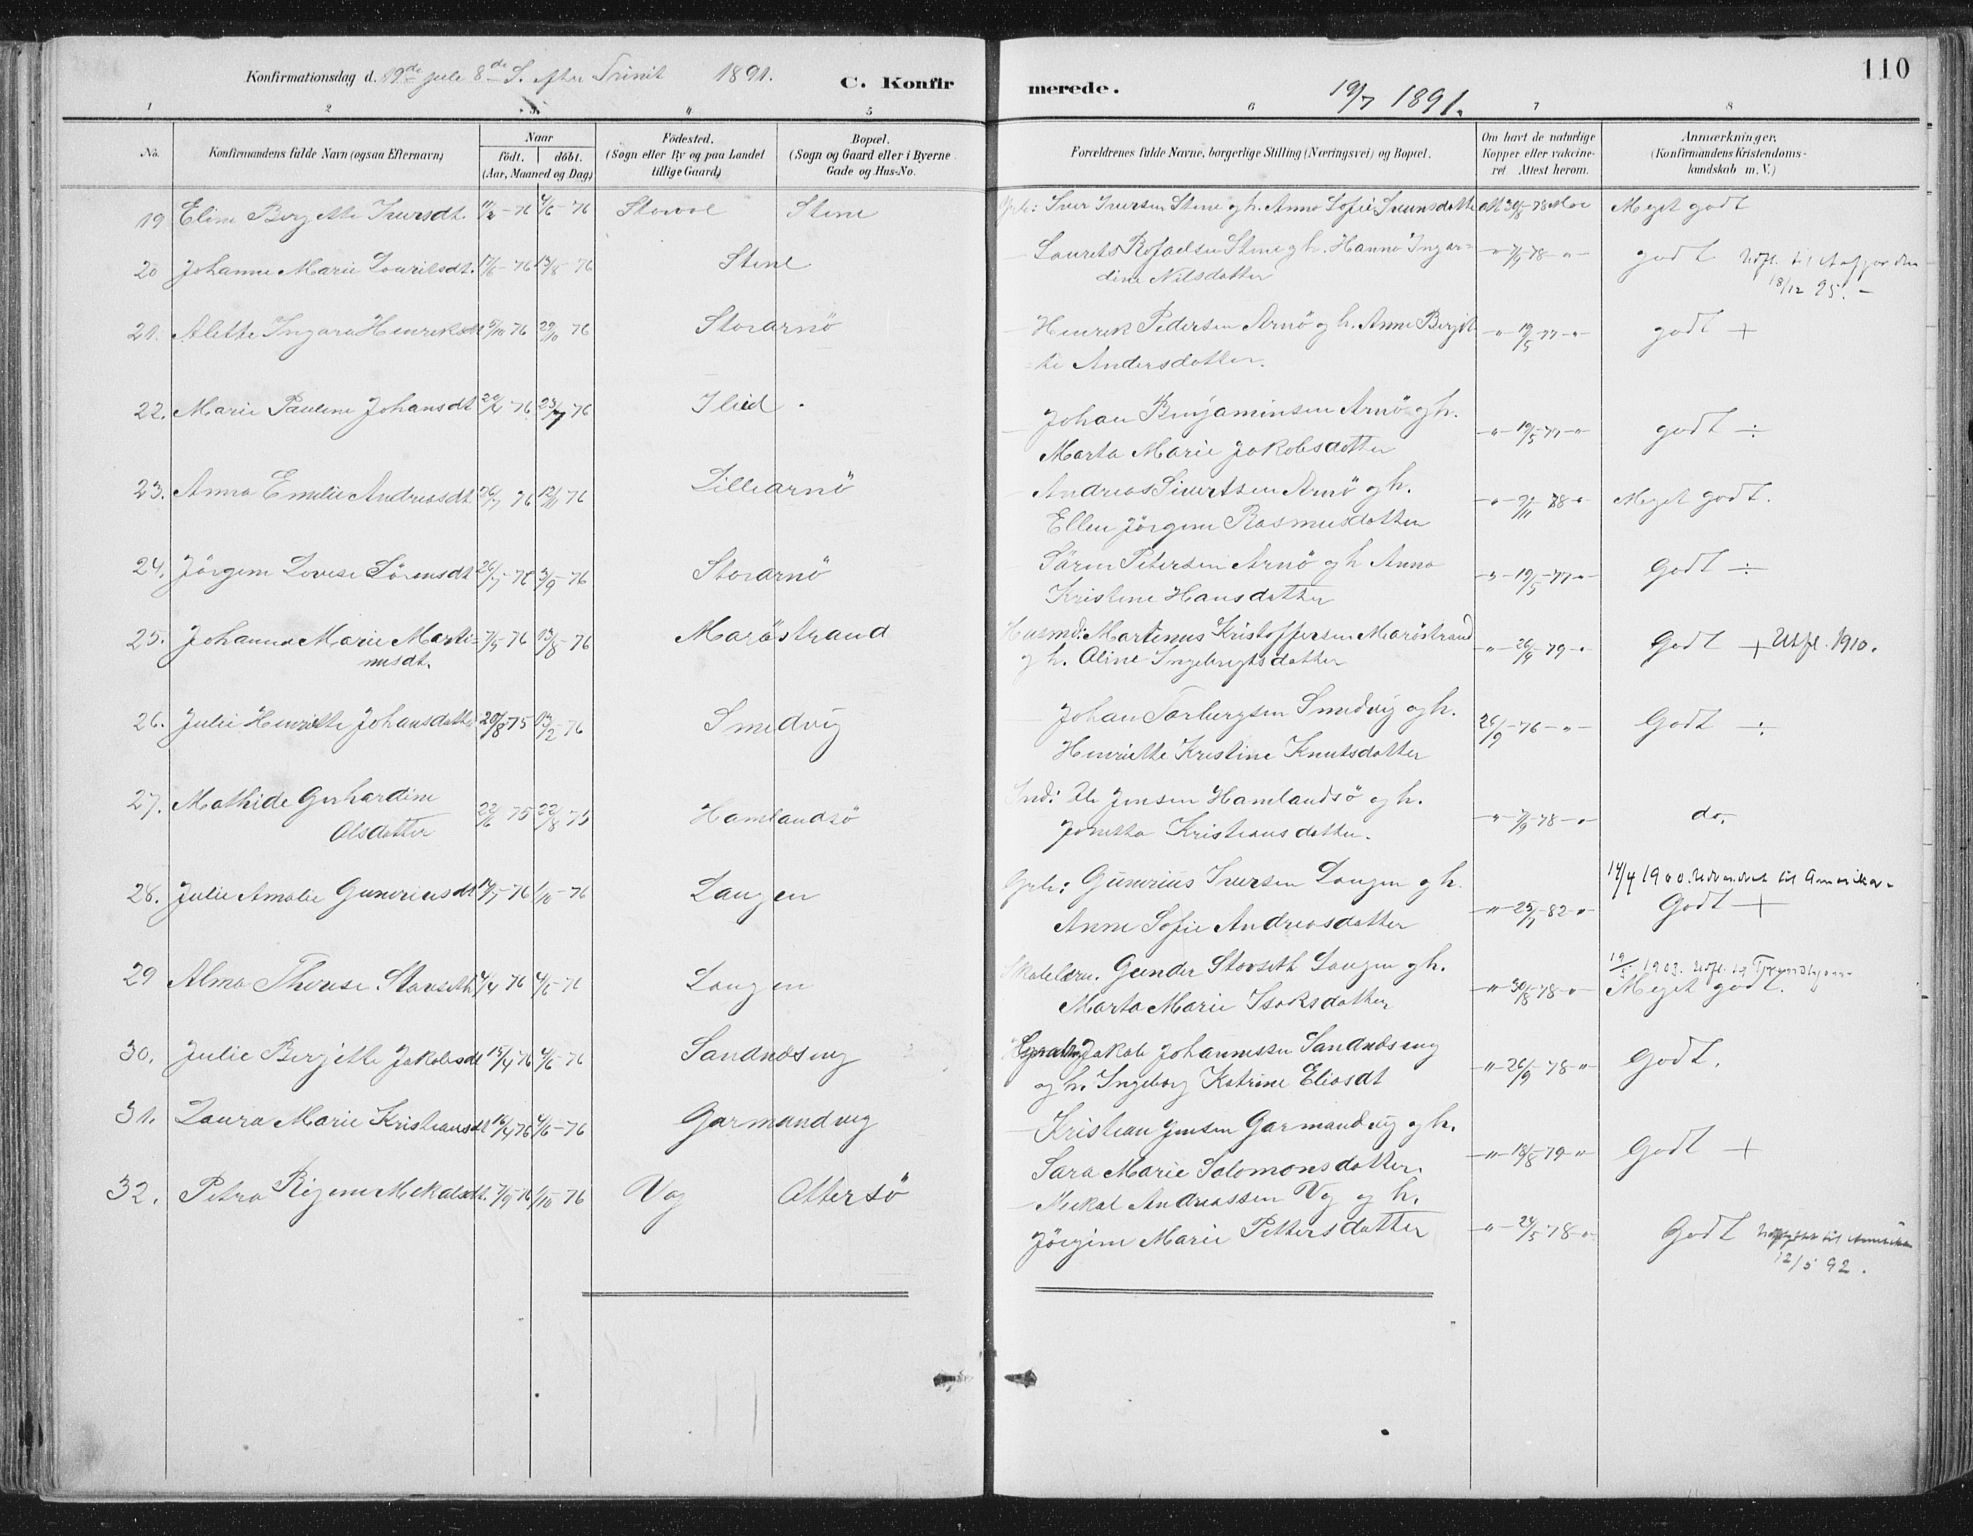 Konfirmationsdag d. 19de Juli 8de S. efter Trinit 1891.
C. Konfirmerede.
19/7 1891.
110
1 2 3 4 5 6 7 8
No.
Konfirmandens fulde Navn (ogsaa Efternavn)
Naar
født. døbt.
(Aar, Maaned og Dag)
Födested.
(Sogn eller By og paa Landet
tillige Gaard)
Bopæl.
(Sogn og Gaard eller i Byerne
Gade og Hus-No.
Forældrenes fulde Navne, borgerlige Stilling (Næringsvei) og Bopæl.
Om havt de naturlige
Kopper eller vakcine-
ret. Attest herom.
Anmærkninger,
(Konfirmandens Kristendoms-
kundskab m. V.)
19 Eline Berjette Iversdt. 76 4/6 76 Stene Iver Iversen Stene og h. Anna Sofie Svensdatter 30/8 78 Meget godt
20 Johanne Marie Lauritsdt. 76 13/8 76 Stene Laurits Rafaelsen Stene og h. Hanna Ingar=
dine Nilsdatter 78 godt
18/12 95. —
21. Alette Ingara Henriksdt 5/10 76 29/10 76 Storarnö Henrik Pedersen Arnö og h. Anne Berjit
te Andersdatter. 19/5 77 godt +
22. Marie Pauline Johansdt 76 23/7 76 Ilied Johan Benjaminsen Arnö og h.
Marta Marie Jakobsdatter 19/5 77 godt ÷
23. Anna Emelie Andreasdt 76 12/11 76 Lillearnö Andreas Sivertsen Arnö og h.
Ellen Jörgine Rasmusdatter 78 Meget godt.
24. Jörgine Lovise Sörensdt 26/7 76 3/9 76 Storarnö Sören Petersen Arnö og h Anna
Kristine Hansdatter 19/5 77 Godt ÷
25. Johanna Marie Marti=
nusdt. 76 13/8 76 Maröstrand Husmd: Martinus Kristoffersen Maröstrand
og h. Oline Ingebrigtsdatter 79 Godt + Utfl. 1910.
26. Julie Henriette Johansdatter 20/8 75 13/2 76 Smedvig Johan Torbergsen Smedvig og h.
Henriette Kristine Knutsdatter 26/9 76 Godt ÷
27. Mathide Gerhardine
Olsdatter 22/6 75 22/8 75 Hamlandsö Ind: Ole Jensen Hamlandsö og h.
Jonetta Kristiansdatter. 78 do.
28. Julie Amalie Guneriusdt 76 1/10 76 Langen Grb: Gunerius Iversen Langen og h.
Anne Sofie Andreasdatter 82 14/4 1900. Udvandret til Amerika.
Godt +
29 Alma Therese Stavseth 4/4 76 4/6 76 Langen Skolelærer. Gunder Stavseth Langen og h.
Marta Marie Isaksdatter 30/8 78 1903. Utfl. til Trondhjem
Meget godt.
30. Julie Berjette Jakobsdt 15/4 76 4/6 76 Sandnæseng Jakob Johannessen Sandnæseng
og h. Ingeborg Katrine Eliasdt 26/9 78 Godt.
31. Laura Marie Kristiansdt 16/4 76 4/6 76 Garmandvig Kristian Jensen Garmandvig og h.
Sara Marie Salomonsdatter. 79 Godt +
32. Petra Regine Mekalsdt. 76 1/10 76 Vag Attersö Mekal Andreassen Vag og h.
Jörgine Marie Pettersdatter 78 Godt Udflyttet til Amerika
12/5 92.